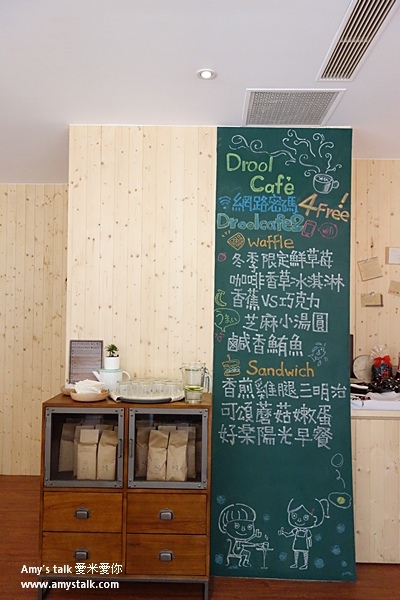 Drool
Café
網路密碼
Droolcafe2
4 Free!
waffle
冬季限定鮮草莓
咖啡香草冰淇淋
香蕉VS巧克力
芝麻小湯圓
鹹香鮪魚
Sandwich
香煎雞腿三明治
可頌蘑菇嫩蛋
好樂陽光早餐
Amy's talk 愛米愛你
www.amystalk.com